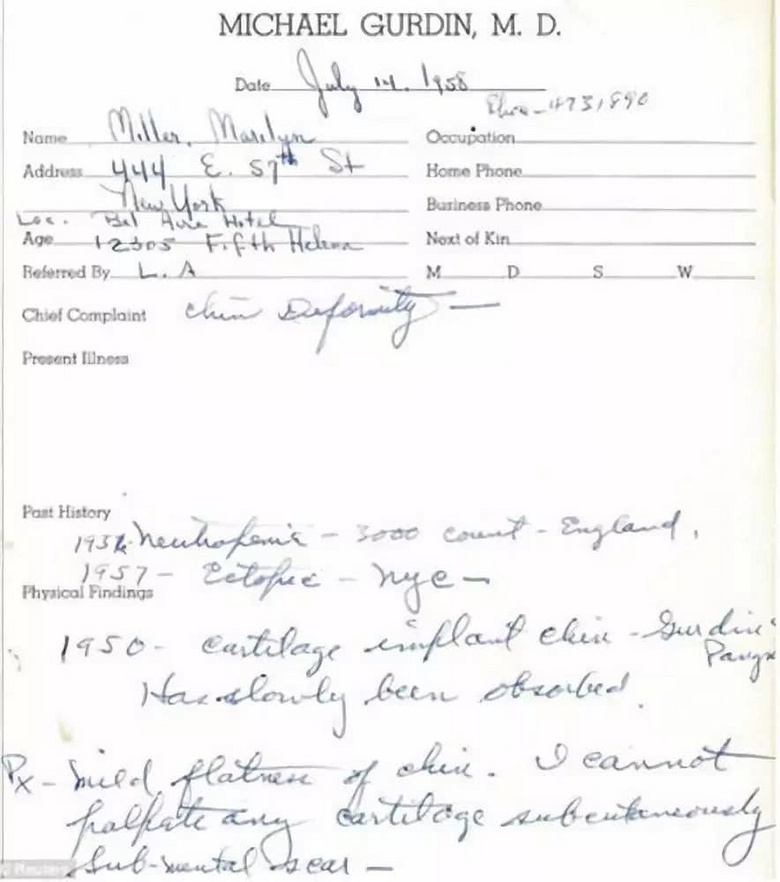 MICHAEL GURDIN, M. D.
Date July 14. 1958
Phone - 4731890
Name Miller, Marilyn
Occupation
Address 444 E. 57th St
Home Phone
New York
Business Phone
Loc. Bel Aire Hotel
Age 12305 Fifth Helena
Next of Kin
Referred By L. A
M D S W
Chief Complaint chin Deformity —
Present Illness
Past History
Neutropenia - 3000 count - England.
1957 - Ectopic - NYC -
Physical Findings
1950 - cartilage implant chin - Gurdin
Has slowly been absorbed.
Px - Mild flatness of chin. I cannot
palpate any cartilage subcutaneously
Sub-mental scar -
Reuters